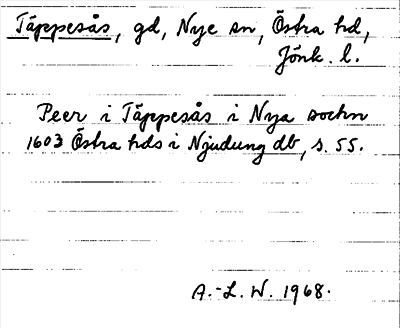 Täppesås, gd, Nye sn, Östra hd,
Jönk. l.
Peer i Täppesås i Nya sochn
1603 Östra hds i Njudung db, s. 55.
A.-L. W. 1968.